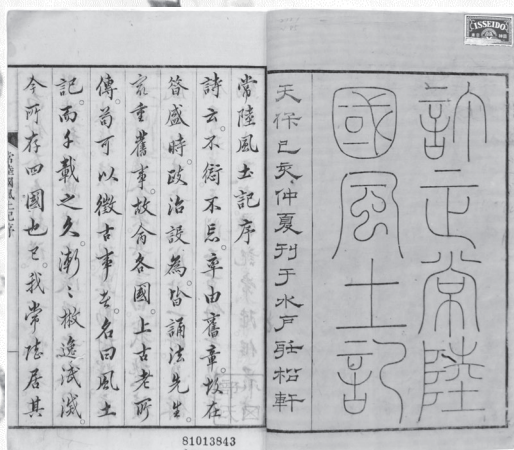 訂正常陸
國風土記
天保己亥仲夏刊于水戶聽松軒
常陸風土記序
詩云。不愆不忘。率由舊章。故在
昔盛時。政治設為。皆誦法先王。
最重舊事。故命各國。上古老所
傳。苟可以徵古事者。名曰風土
記。而千載之久。漸〻散逸泯滅。
今所存四國也已。我常陸居其
常陸國風土記序
ISSEIDO
81013843